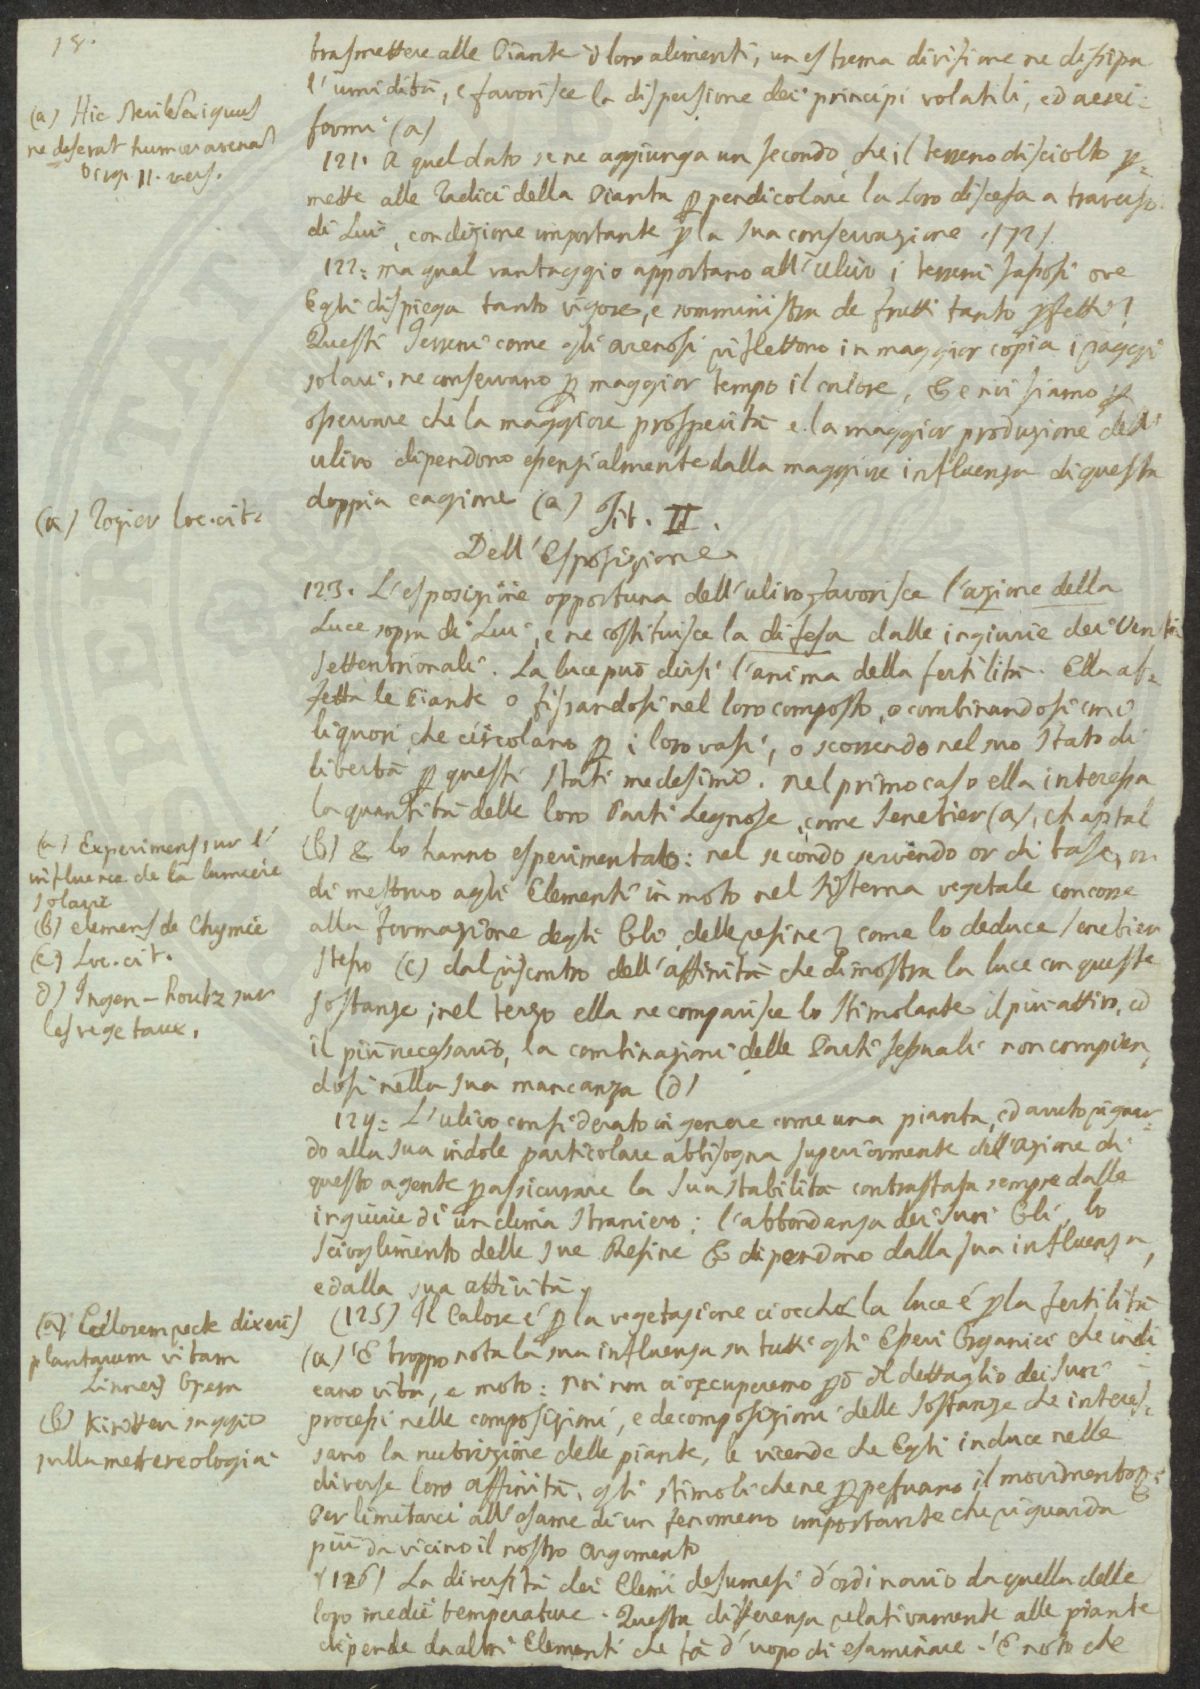 18.
trasmettere alle Piante i loro alimenti, un estrema divisione ne dissipa
l'umidità, e favorisce la dispersione dei principi volatili, ed aerei-
formi (a)
(a) Hic steriles
ne deserat humor arenas
Virg.
121. A quel dato se ne aggiunga un secondo, che il terreno disciolto p-
mette alle Radici della Pianta ppendicolari la Loro discesa a traverso
di Lui, condizione importante p la sua conservazione
122: ma qual vantaggio apportano all'ulivo i terreni sassosi ove
Egli dispiega tanto vigore, e somministra de frutti tanto pfetti?
Questi Terreni come gli arenosi riflettono in maggior copia i raggi
solari, ne conservano p maggior tempo il calore, E noi siamo p
osservare che la maggiore prosperità e la maggior produzione dell'
ulivo dipendono essenzialmente dalla maggiore influenza di questa
doppia cagione (a)
(a) Rozier loc. cit:
Tit. II.
Dell'Esposizione
123. L'esposizione opportuna dell'ulivo favorisce l'azione della
Luce sopra di Lui, e ne costituisce la difesa dalle ingiurie dei Venti
settentrionali. La luce può dirsi l'anima della fertilità. Ella af-
fetta le Piante o fissandosi nel loro composto, o combinandosi coi
liquori, che circolano p i loro vasi, o scorrendo nel suo stato di
libertà p questi stati medesimi. Nel primo caso ella interessa
la quantità delle loro Parti Legnose, come Senebier (a), Chaptal
(b) & lo hanno esperimentato: nel secondo servendo or di base, or
di mestruo agli Elementi in moto nel sistema vegetale concorre
alla formazione degli Oli, delle resine, come lo deduce Senebier
stesso (c) dal riscontro dell'affinità che dimostra la luce con queste
sostanze; nel terzo ella ne comparisce lo stimolante il più attivo, ed
il più necessario, la combinazioni delle Parti sessuali non compien-
dosi nella sua mancanza (d)
(a) Experimens sur l'
influence de la lumiere
solaire
(b) elemens de Chymie
(c) Loc. cit.
d) Ingen-houtz sur
les vegetaux.
124: L'ulivo considerato in genere come una pianta, ed avuto riguar-
do alla sua indole particolare abbisogna superiormente dell'azione di
questo agente p assicurare la sua stabilità contrastata sempre dalle
ingiurie di un clima straniero: l'abbondanza dei suoi Oli, lo
scioglimento delle sue Resine & dipendono dalla sua influenza,
e dalla sua attività.
(125) Il Calore é p la vegetazione ciocché la luce é p la fertilità
(a) É troppo nota la sua influenza su tutti gli Esseri Organici che indi-
cano vita, e moto: noi non ci occuperemo pò il dettaglio dei suoi
processi nelle composizioni, e decomposizioni delle sostanze che interes-
sano la nutrizione delle piante, le vicende che Egli induce nelle
diverse loro affinità, gli stimoli che ne ppetuano il movimento &:
Per limitarci all'esame di un fenomeno importante che riguarda
più da vicino il nostro Argomento
(a) Calorem recte dixeris
plantarum vitam
Linnei Opera
(b) Kirwan saggio
sulla metereologia
(126) La diversità dei Climi desumesi d'ordinario da quella delle
loro medie temperature. Questa differenza relativamente alle piante
dipende da altri Elementi che fà d'uopo di esaminare. É noto che